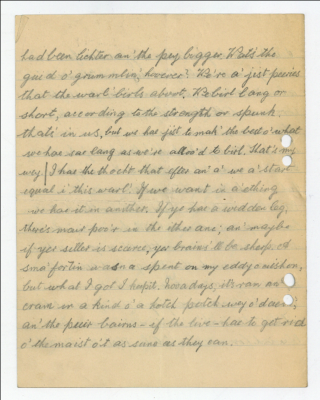 had been lichter an' the pey bigger. Wat's the
gued o' grummlin', hooever? We're a' jist peeries
that the warl' birls aboot. We birl lang or
short, according to the strength or spunk
that's in us, but we hae jist to mak' the best o' what
we hae sae lang as we're allow'd to birl. That's my
wey. I hae the thocht that efter an' a' we a' start
equal i' this warl'. If we want in ae thing
we hae it in another. If ye hae a wooden leg,
there's mair poo'er in the ither ane; an' maybe
if yer siller is scarce, yer brains 'll be sheep. A
sma' fortin wasna spent on my eddycaishon,
but what I got I hopit. Nooadays, it's ram an'
cram in a kind o' a hotch potch wey o' daein'
an' the peeir bairns – if the live – hae to get rid
o' the maist o't as sune as they can.